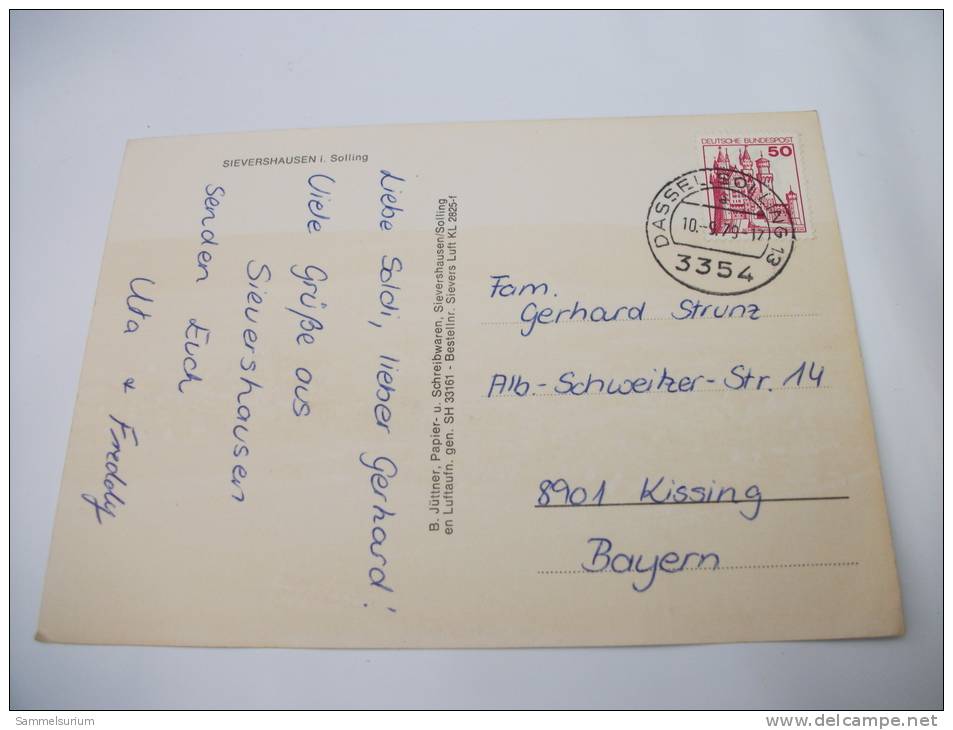 SIEVERSHAUSEN i. Solling
Liebe Soldi, lieber Gerhard!
Viele Grüße aus
Sievershausen
senden Euch
Uta & Fredoly
B. Jüttner, Papier- u. Schreibwaren, Sievershausen/Solling
en Luftaufn. gen. SH 33161 - Bestellnr. Sievers Luft KL 2825-f
DEUTSCHE BUNDESPOST
50
DASSEL, SOLLING 13
10.-9.79-17
3354
Fam.
Gerhard Strunz
Alb.-Schweitzer-Str. 14
8901 Kissing
Bayern
Sammelsurium
www.delcampe.net